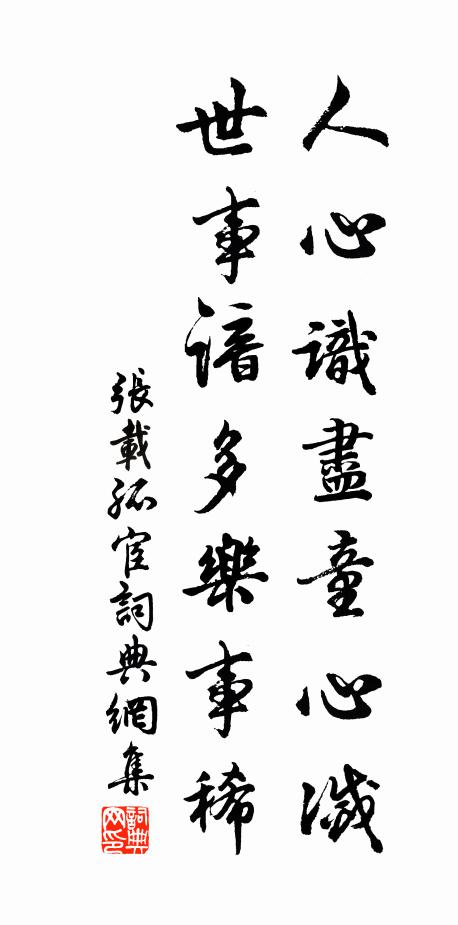 人心識盡童心滅
世事諳多樂事稀
張載孤宦詞典網集
詞典
网印